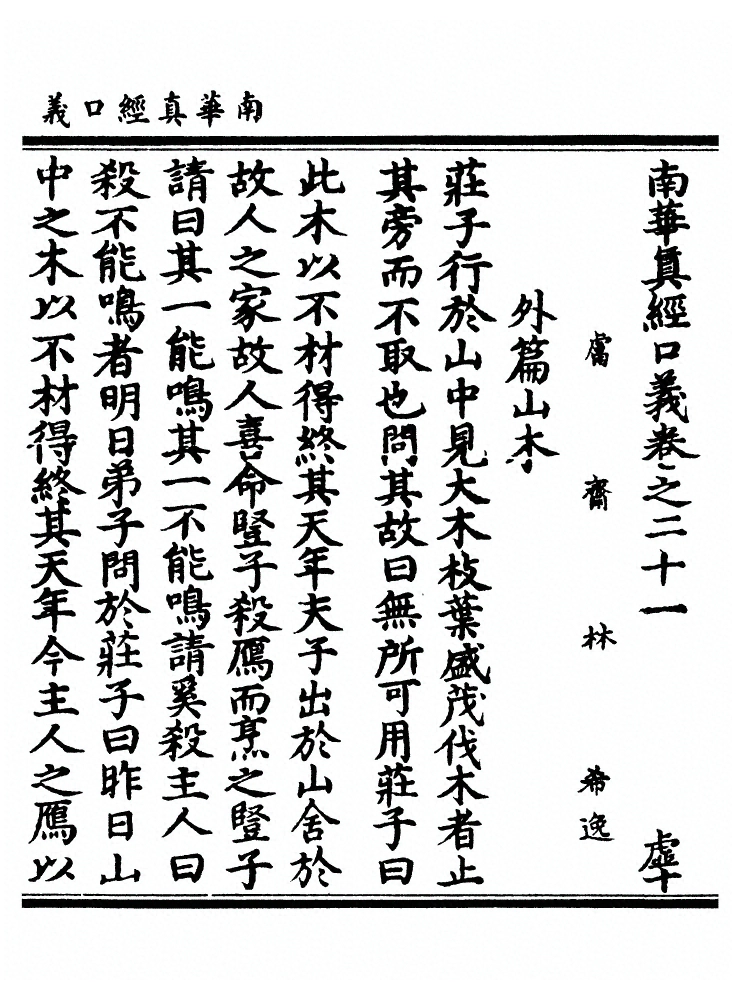 南華真經口義
南華真經口義卷之二十一 虛十
鬳齋林希逸
外篇山木
莊子行於山中見大木枝葉盛茂伐木者止
其旁而不取也問其故曰無所可用莊子曰
此木以不材得終其天年夫子出於山舍於
故人之家故人喜命豎子殺鴈而烹之豎子
請曰其一能鳴其一不能鳴請奚殺主人曰
殺不能鳴者明日弟子問於莊子曰昨日山
中之木以不材得終其天年今主人之鴈以